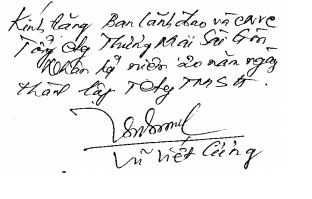 Kính tặng Ban lãnh đạo và CNVC
Tổng Cty Thương Mại Sài Gòn
Nhân kỷ niệm 20 năm ngày
thành lập TCty TMSG.
Vũ Viết Cường